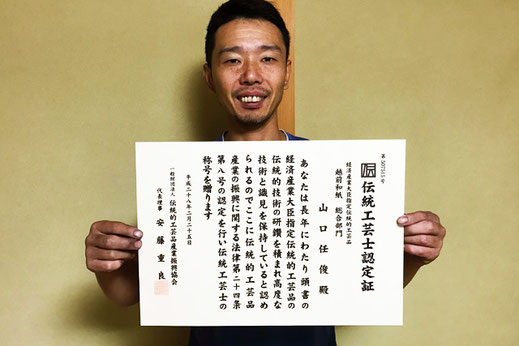 第307515号
伝統工芸士認定証
経済産業大臣指定伝統的工芸品
越前和紙 総合部門
山口任俊殿
あなたは長年にわたり頭書の
経済産業大臣指定伝統的工芸品の
伝統的技術の研鑽を積まれ高度な
技術と識見を保持していると認め
られるのでここに伝統的工芸品
産業の振興に関する法律第二十四条
第八号の認定を行い伝統工芸士の
称号を贈ります
平成二十八年二月二十五日
一般財団法人 伝統的工芸品産業振興協会
代表理事 安藤重良